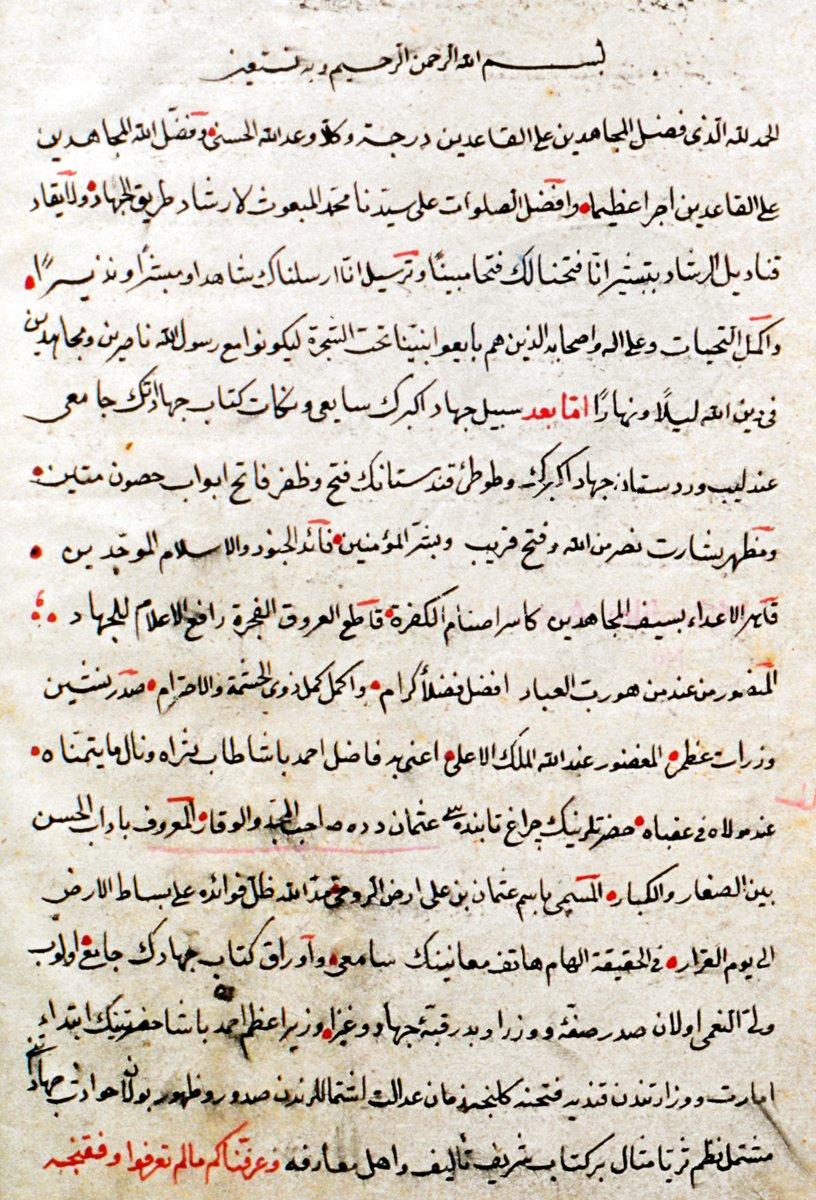 بسم الله الرحمن الرحيم وبه نستعين
الحمد لله الذى فضل المجاهدين على القاعدين درجة وكلا وعد الله الحسنى وفضل الله المجاهدين
على القاعدين اجرا عظيما وافضل الصلوات على سيدنا محمد المبعوث لارشاد طريق الجهاد ولايقاد
قناديل الرشاد بتبشير انا فتحنا لك فتحا مبينا وترسيل انا ارسلناك شاهدا ومبشرا ونذيرا
واكمل التحيات وعلى اله واصحابه الذين هم بايعوا نبينا تحت الشجرة ليكونوا مع رسول الله ناصرين ومجاهدين
فى دين الله ليلا ونهارا اما بعد سبيل جهاد اكبرك ساعى ونكات كتاب جهادك جامعى
عندليب وردستان جهاد اكبرك وطوطئ قندستانك فتح وظفر فاتح ابواب حصون متين
ومظهر بشارت نصر من الله وفتح قريب وبشر المؤمنين قائد الجنود والاسلام الموحدين
قاهر الاعداء بسيف المجاهدين كاسر اصنام الكفرة قاطع العروق الفجرة رافع الاعلام للجهاد
المنصور من عند من هو رب العباد افضل فضلأ كرام واكمل كمل ذوى الحشمة والاحترام صدر نشين
وزرات عظمى المغفور عند الله الملك الاعلى اعنى به فاضل احمد باشا طاب ثراه ونال ما يتمناه
عند مولاه فى عقباه حضرتلرينك چراغ تابنده سى عثمان دده صاحب المجد والوقار المعروف باداب الحسن
بين الصغار والكبار المسمى باسم عثمان بن على ارض الرومى مد الله ظل فوائده على بساط الارض
الى يوم القرار فى الحقيقة الهام هاتف معانينك سامعى واوراق كتاب جهادك جامع اولوب
ولى النعمى اولان صدر صفۀ ووزرا وبدرقۀ جهاد وغزا وزير اعظم احمد باشا حضرتينك ابتداء
امارت ووزارتندن قنديه فتحنه كلنجه زمان عدالت اشتماللرندن صدور وظهور بولان حوادث جهاد
مشتمل نظم ثريا مثال بر كتاب شريف تأليف واهل معارفه وعرفناكم ما لم تعرفوا وفقنجه